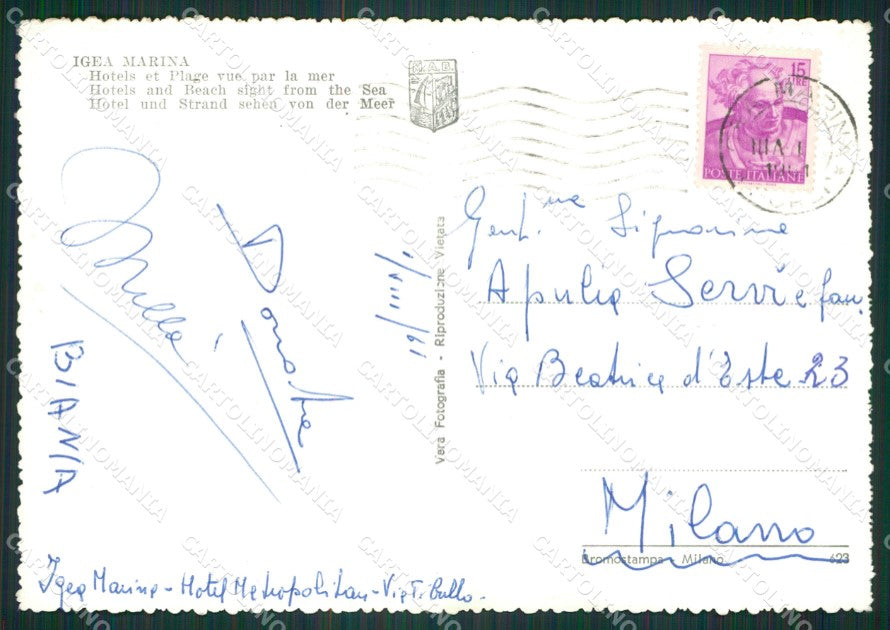 IGEA MARINA
Hotels et Plage vue par la mer
Hotels and Beach sight from the Sea
Hotel und Strand sehen von der Meer
M.A.B.
15 LIRE
POSTE ITALIANE
Gent.me Signorine
Apulia Servi e fam.
Via Beatrice d'Este 23
Milano
Bromostampa - Milano 623
Vera Fotografia - Riproduzione Vietata
1/VIII/61
BIANIA
Igea Marina - Hotel Metropolitan - Via Tibullo.
CARTOLINOMANIA